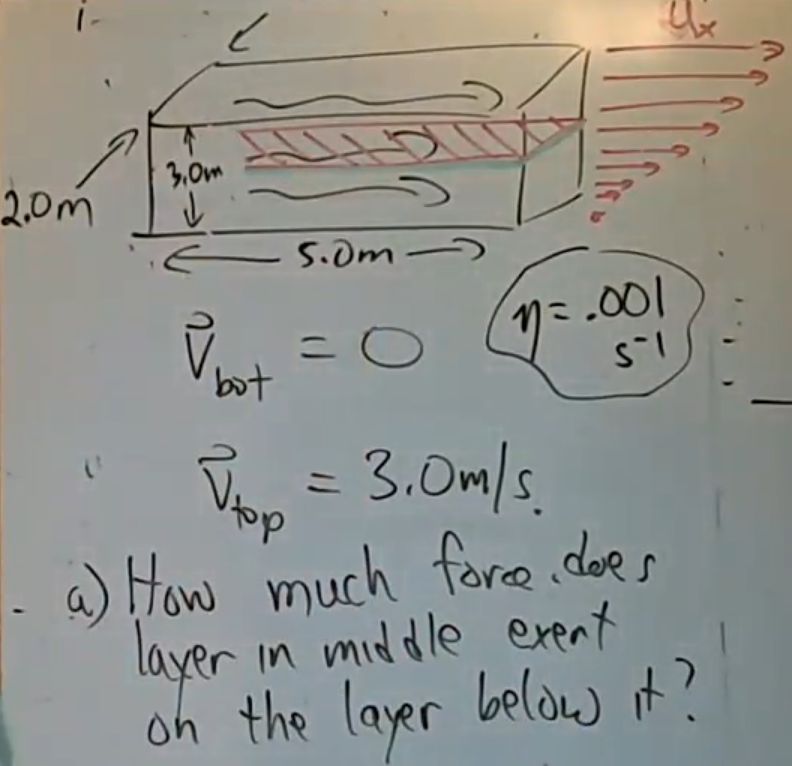 i.
Ux
3.0m
2.0m
5.0m
η = .001
s⁻¹
V⃗bot = 0
V⃗top = 3.0m/s.
a) How much force does
layer in middle exert
on the layer below it?